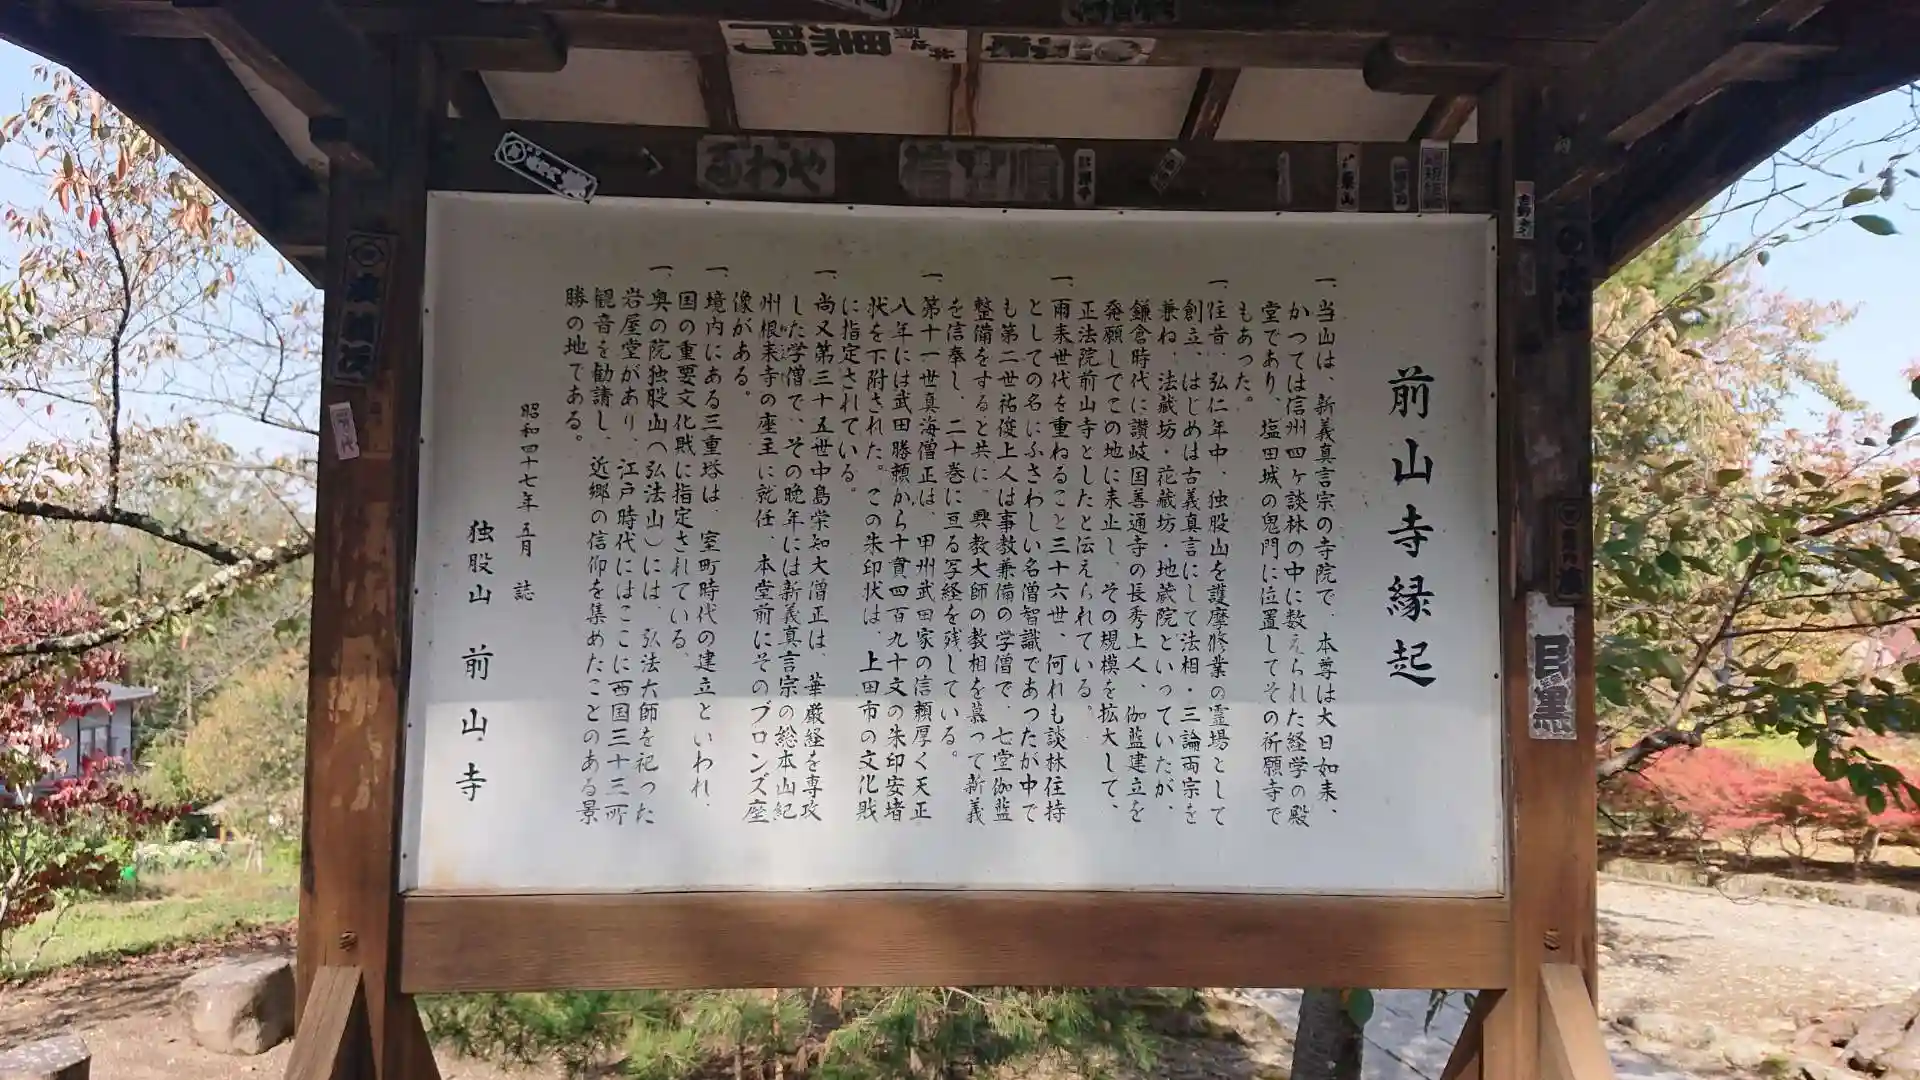 前山寺縁起
一、当山は、新義真言宗の寺院で、本尊は大日如来、
かつては信州四ヶ談林の中に数えられた経学の殿
堂であり、塩田城の鬼門に位置してその祈願寺で
もあった。
一、往昔、弘仁年中、独股山を護摩修業の霊場として
創立、はじめは古義真言にして法相・三論両宗を
兼ね、法蔵坊・花蔵坊・地蔵院といっていたが、
鎌倉時代に讃岐国善通寺の長秀上人、伽藍建立を
発願してこの地に来止し、その規模を拡大して、
正法院前山寺としたと伝えられている。
一、爾来世代を重ねること三十六世、何れも談林住持
としての名にふさわしい名僧智識であったが中で
も第二世祐俊上人は事教兼備の学僧で、七堂伽藍
整備をすると共に、興教大師の教相を慕って新義
を信奉し、二十巻に亘る写経を残している。
一、第十一世真海僧正は、甲州武田家の信頼厚く天正
八年には武田勝頼から十貫四百九十文の朱印安堵
状を下附された。この朱印状は、上田市の文化戝
に指定されている。
一、尚又第三十五世中島栄知大僧正は、華厳経を専攻
した学僧で、その晩年には新義真言宗の総本山紀
州根来寺の座主に就任、本堂前にそのブロンズ座
像がある。
一、境内にある三重塔は、室町時代の建立といわれ、
国の重要文化戝に指定されている。
一、奥の院独股山(弘法山)には、弘法大師を祀った
岩屋堂があり、江戸時代にはここに西国三十三所
観音を勧請し、近郷の信仰を集めたことのある景
勝の地である。
昭和四十七年五月 誌
独股山 前山寺